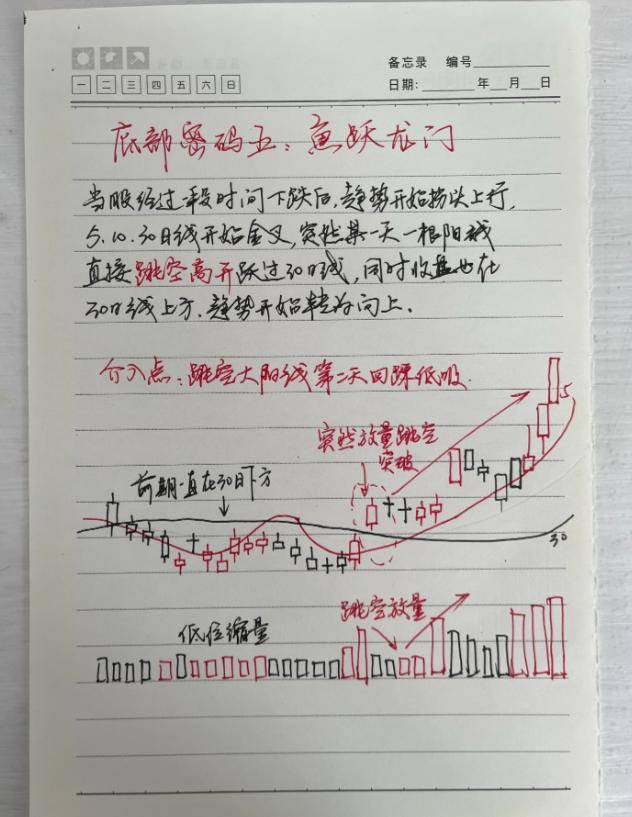 备忘录 编号
一 二 三 四 五 六 日
日期: 年 月 日
底部密码五:鱼妖龙门
当股经过一段时间下跌后,趋势开始拐头上行,
5.10.30日线开始金叉,突然某一天一根阳线
直接跳空高开跃过30日线,同时收盘也在
30日线上方,趋势开始转为向上.
介入点:跳空大阳线第二天回踩低吸.
突然放量跳空
突破
5
前期一直在30日下方
30
跳空放量
低位缩量